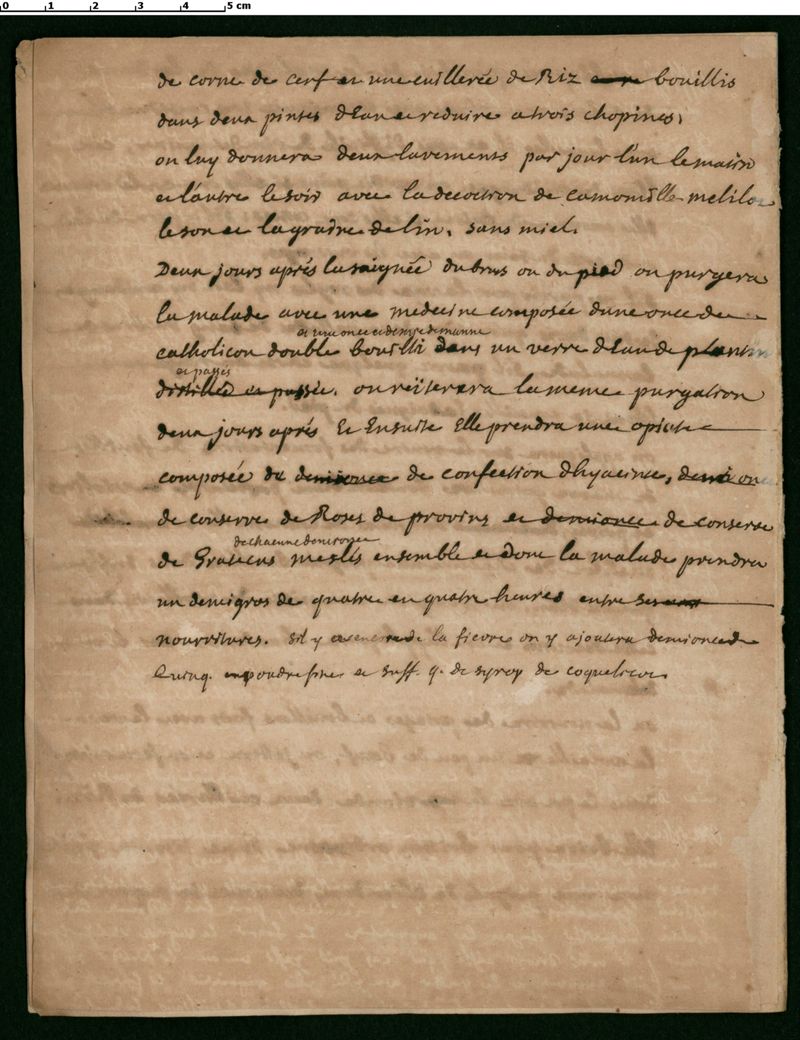 0 1 2 3 4 5 cm
de corne de cerf et une cuillerée de Riz bouillis
dans deux pintes d'Eau et reduire a trois chopines,
on luy donnera deux lavements par jour l'un le matin
et l'autre le soir avec la decoction de camomille melilot
le son et la graine de lin, sans miel.
Deux jours aprés la saignée du bras ou du pied on purgera
la malade avec une medecine composée dune once de
et une once et demye de manne
catholicon double bouilli dans un verre d'Eau de plantin
et passés
distillée et passée. on reïterera la meme purgation
deux jours aprés Et Ensuite Elle prendra une opiate
composée de demionce de confection d'hyacinte, demi on
de conserve de Roses de provins et demionce de conserve
de chacune demi once
de Gratecus meslés ensemble et dont la malade prendra
un demigros de quatre en quatre heures entre ses
nourritures. sil y a encore de la fievre on y ajoutera demionce de
quinq. en poudre fine et suff. q. de syrop de coquelicot